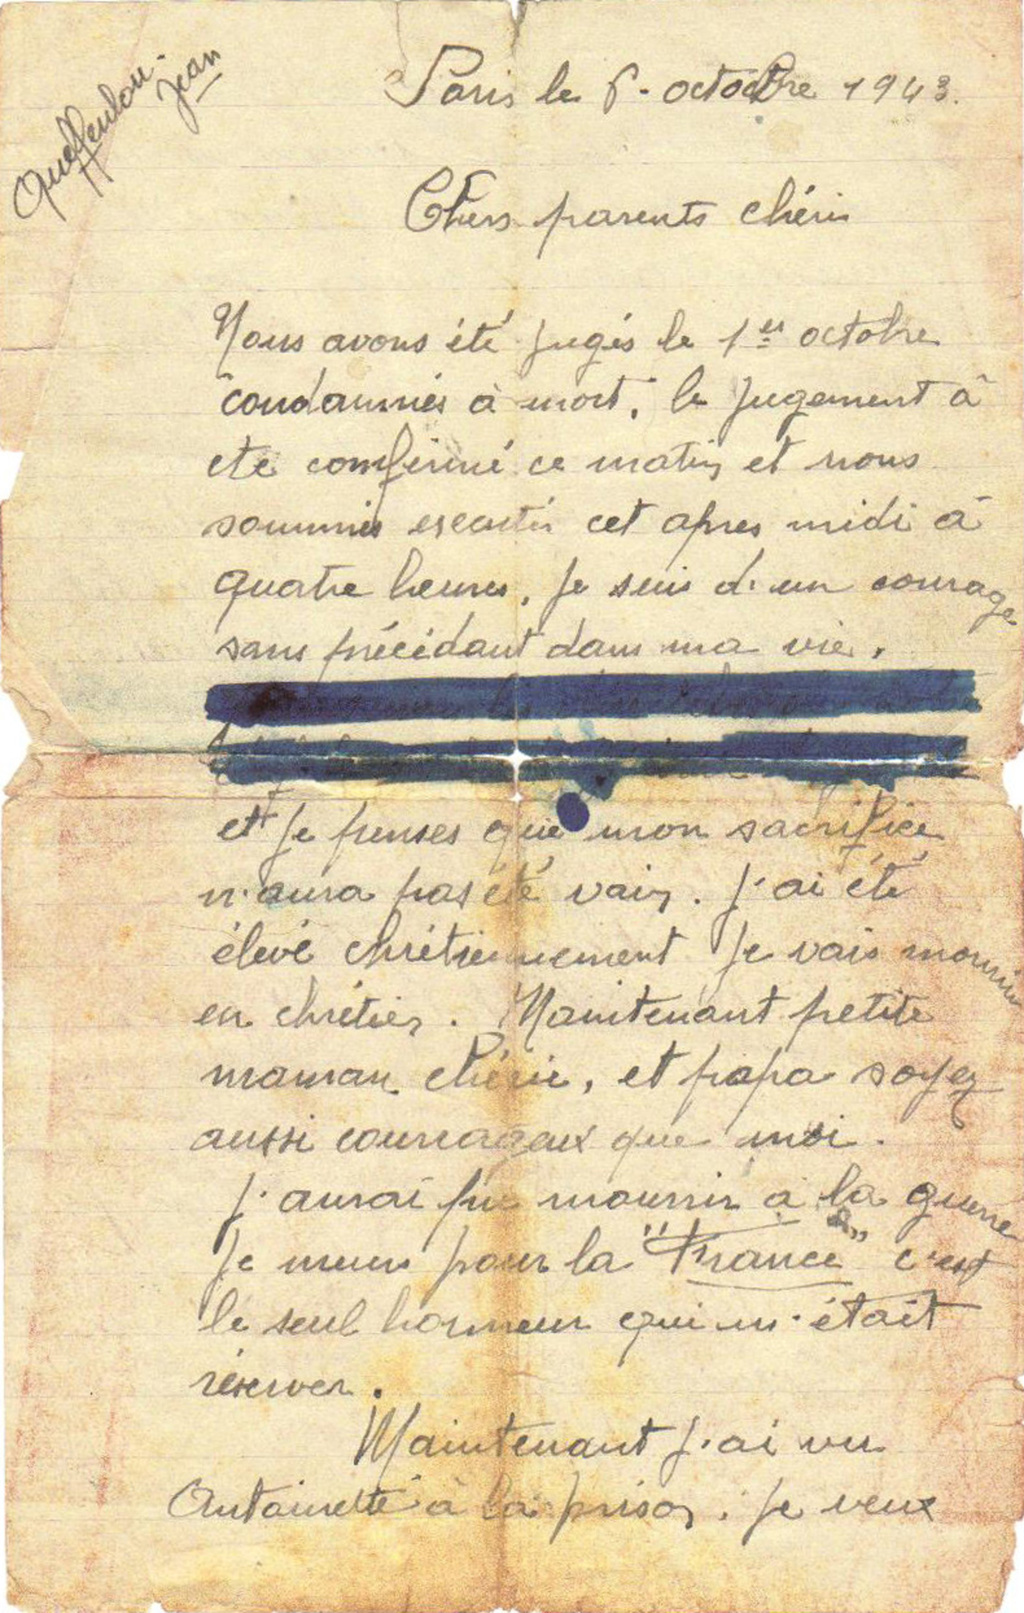 Queffeulou
Jean
Paris le 6. octobre 1943.
Chers parents chéris
Nous avons été jugés le 1er octobre
condamnés à mort, le jugement à
ete comfirmé ce matin et nous
sommes executés cet apres midi à
quatre heures, je suis d'un courage
sans précédant dans ma vie.
et je penses que mon sacrifice
n'aura pas été vain. J'ai été
élevé chrétiennement je vais mourrir
en chrétien. Maintenant petite
maman chérie, et papa soyez
aussi courrageux que moi.
J'aurai pu mourrir à la guerre
je meurs pour la "France" c'est
le seul honneur qui m'était
réserver.
Maintenant j'ai vu
Antoinette à la prison. je veux